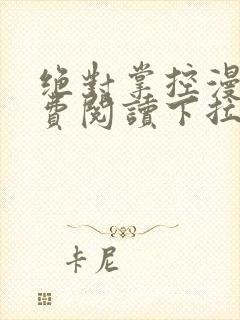 绝對掌控漫
費閱讀下拉
卡尼